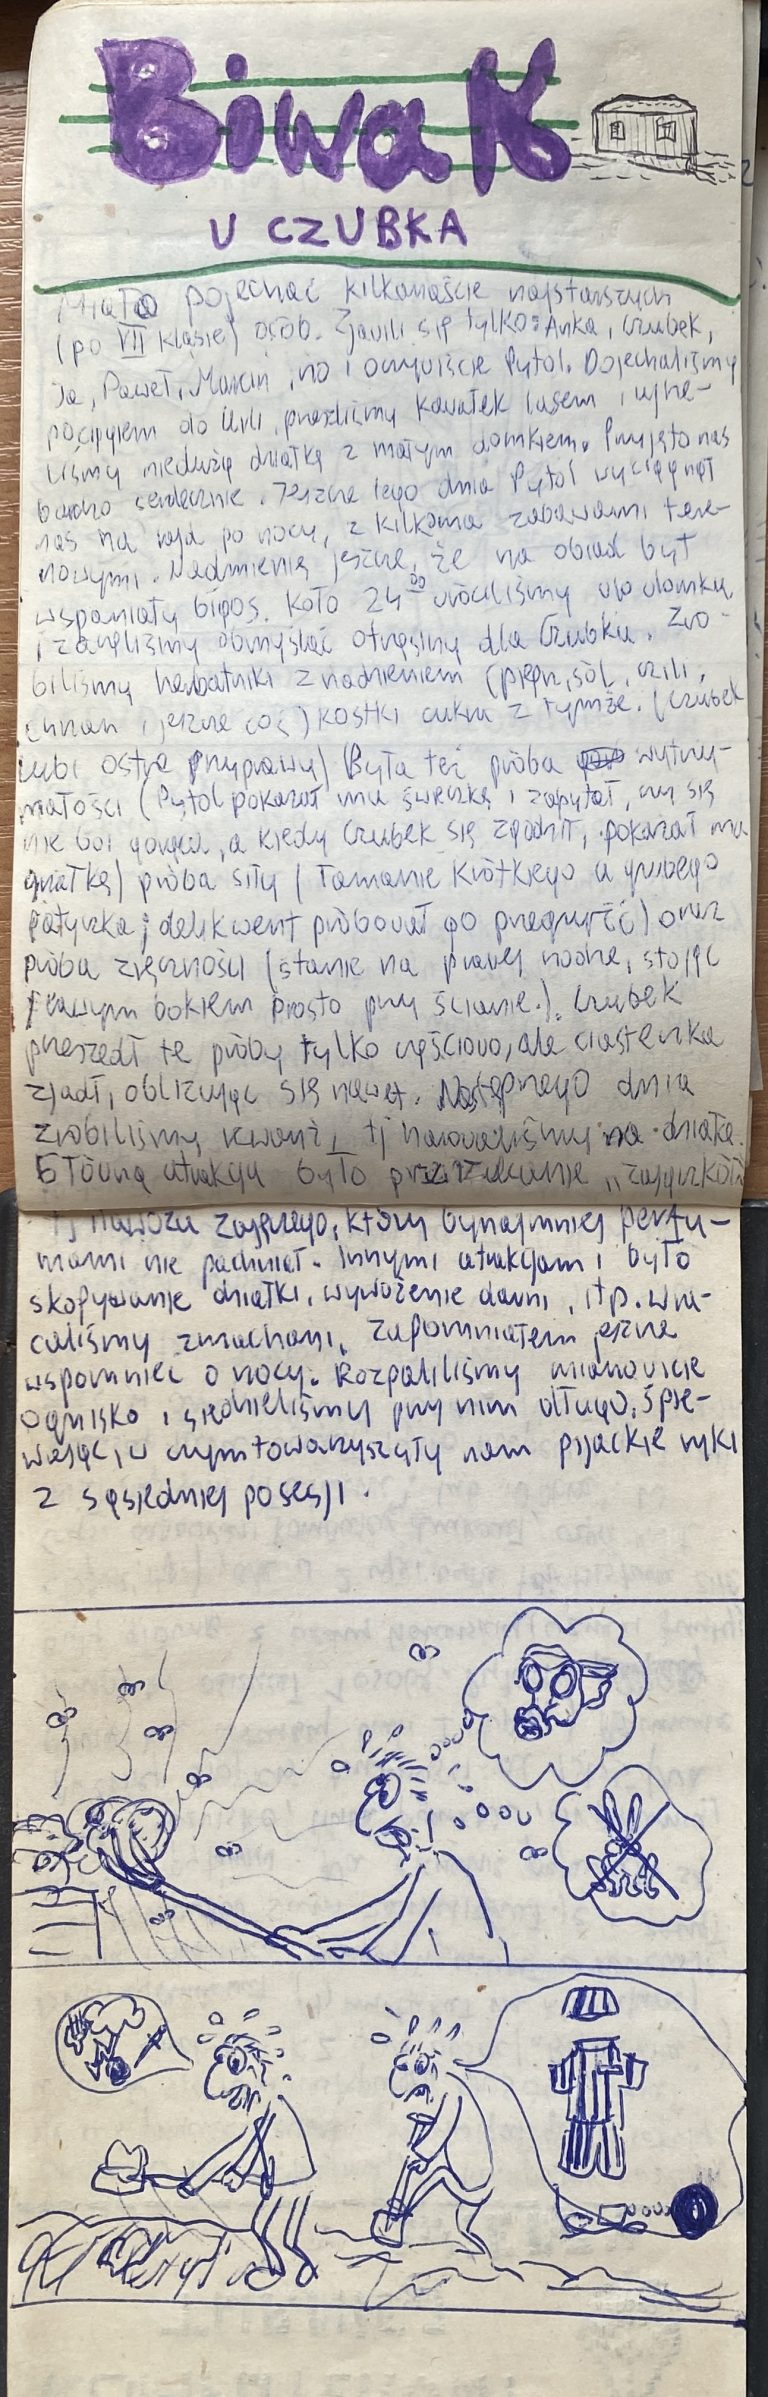 Biwak
U CZUBKA
Miało pojechać kilkanaście najstarszych
(po VII klasie) osób. Zjawili się tylko: Anka, Czubek,
Ja, Paweł, Marcin, no i oczywiście Pytol. Dojechaliśmy
pociągiem do Urli, przeszliśmy kawałek lasem i ujrze-
liśmy niedużą działkę z małym domkiem. Przyjęto nas
bardzo serdecznie. Jeszcze tego dnia Pytol wyciągnął
nas na rajd po nocy, z kilkoma zabawami tere-
nowymi. Nadmienię jeszcze, że na obiad był
wspaniały bigos. Koło 24⁰⁰ wróciliśmy do domku
i zaczęliśmy obmyślać otrzęsiny dla Czubka. Zro-
biliśmy herbatniki z nadzieniem (pieprz, sól, czili,
chrzan i jeszcze coś) kostki cukru z tymże. (Czubek
lubi ostre przyprawy) Była też próba wytrzy-
małości (Pytol pokazał mu świeczkę i zapytał, czy się
nie boi gorąca, a kiedy Czubek się zgodził, pokazał mu
gnatkę) próba siły (łamanie krótkiego a grubego
patyczka; delikwent próbował go przegryźć) oraz
próba zręczności (stanie na prawej nodze, stojąc
prawym bokiem prosto przy ścianie.). Czubek
przeszedł te próby tylko częściowo, ale ciasteczka
zjadł, oblizując się nawet. Następnego dnia
zrobiliśmy kwarż, tj harowaliśmy na działce.
Główną atrakcją było przerzucanie „zajączków"
tj nawozu zajęczego, który bynajmniej perfu-
mami nie pachniał. Innymi atrakcjami było
skopywanie działki, wywożenie darni, itp. Wra-
caliśmy zmachani. Zapomniałem jeszcze
wspomnieć o nocy. Rozpaliliśmy mianowicie
ognisko i siedzieliśmy przy nim długo, śpie-
wając, w czym towarzyszyły nam pijackie ryki
z sąsiedniej posesji.